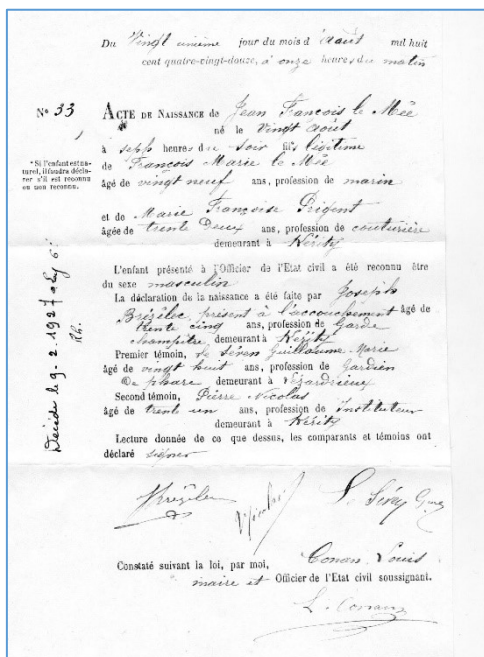 Du Vingt unième jour du mois d'août mil huit
cent quatre-vingt-douze, à onze heures du matin
N° 33
ACTE DE NAISSANCE de Jean François le Mée
né le vingt août
à sept heures du soir fils légitime
*Si l'enfant est naturel, il faudra déclarer s'il est reconnu ou non reconnu.
de François Marie le Mée
âgé de vingt neuf ans, profession de marin
et de Marie Françoise Prigent
âgée de trente Deux ans, profession de couturière
demeurant à Kérity
L'enfant présenté à l'Officier de l'Etat civil a été reconnu être
du sexe masculin
La déclaration de la naissance a été faite par Joseph
Brézélec, présent à l'accouchement âgé de
trente cinq ans, profession de Garde
champêtre, demeurant à Kérity
Premier témoin, le Séven Guillaume Marie
âgé de vingt huit ans, profession de Gardien
De phare demeurant à Lézardrieux
Second témoin, Pierre Nicolas
âgé de trente un ans, profession de Instituteur
demeurant à Kérity
Lecture donnée de ce que dessus, les comparants et témoins ont
déclaré signer
Décédé le 9.2.1927
Brézélec
Nicolas
Constaté suivant la loi, par moi, Conan Louis
maire et Officier de l'Etat civil soussignant.
L. Conan